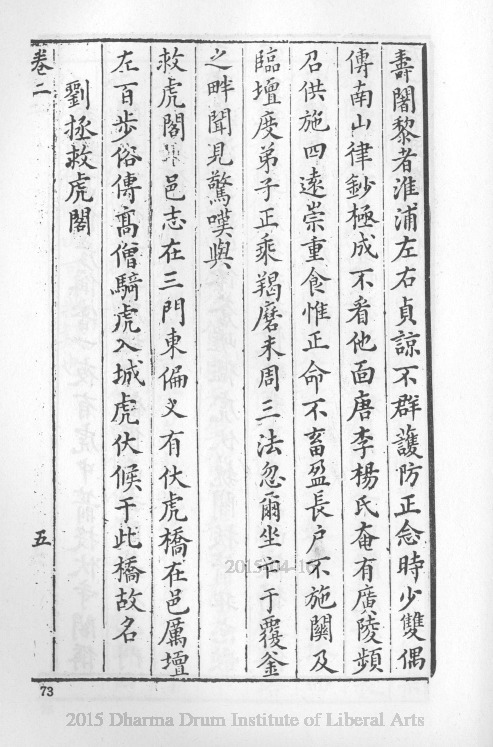 壽闍黎者淮浦左右貞諒不群護防正念時少雙偶
傳南山律鈔極成不看他面唐李楊氏奄有廣陵頻
召供施四遠崇重食惟正命不畜盈長戶不施關及
臨壇度弟子正乘羯磨未周三法忽爾坐卒于覆釜
之畔聞見驚嘆與
救虎閣 邑志在三門東偏又有伏虎橋在邑厲壇
左百步俗傳高僧騎虎入城虎伏候于此橋故名
劉拯救虎閣
卷二 五
73
2015 Dharma Drum Institute of Liberal Arts